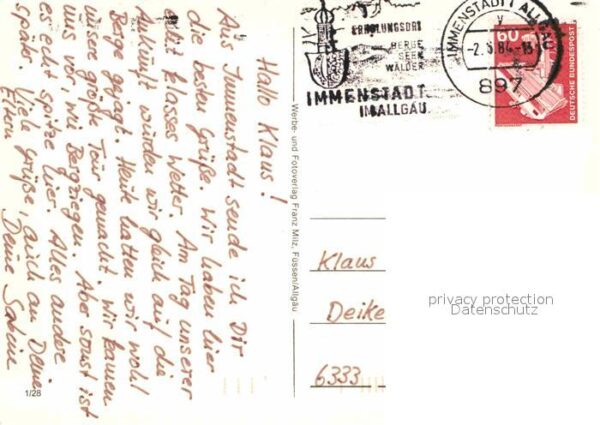 Hallo Klaus!
Aus Immenstadt sende ich Dir
die besten Grüße. Wir haben hier
echt klasses Wetter. Am Tag unserer
Ankunft wurden wir gleich auf die
Berge gejagt. Heute hatten wir wohl
unsere größte Tour gemacht. Wir kamen
uns vor, wie Bergziegen. Aber sonst ist
es echt spitze hier. Alles andere
später. Viele Grüße, auch an Deine
Eltern Deine Sabine
1/28
Werbe- und Fotoverlag Franz Milz, Füssen/Allgäu
ERHOLUNGSORT
BERGE
SEEN
WÄLDER
IMMENSTADT
IM ALLGÄU
IMMENSTADT I ALLGÄU
v
-2.5.84-15
897
60
DEUTSCHE BUNDESPOST
Klaus
Deike
6333
privacy protection
Datenschutz